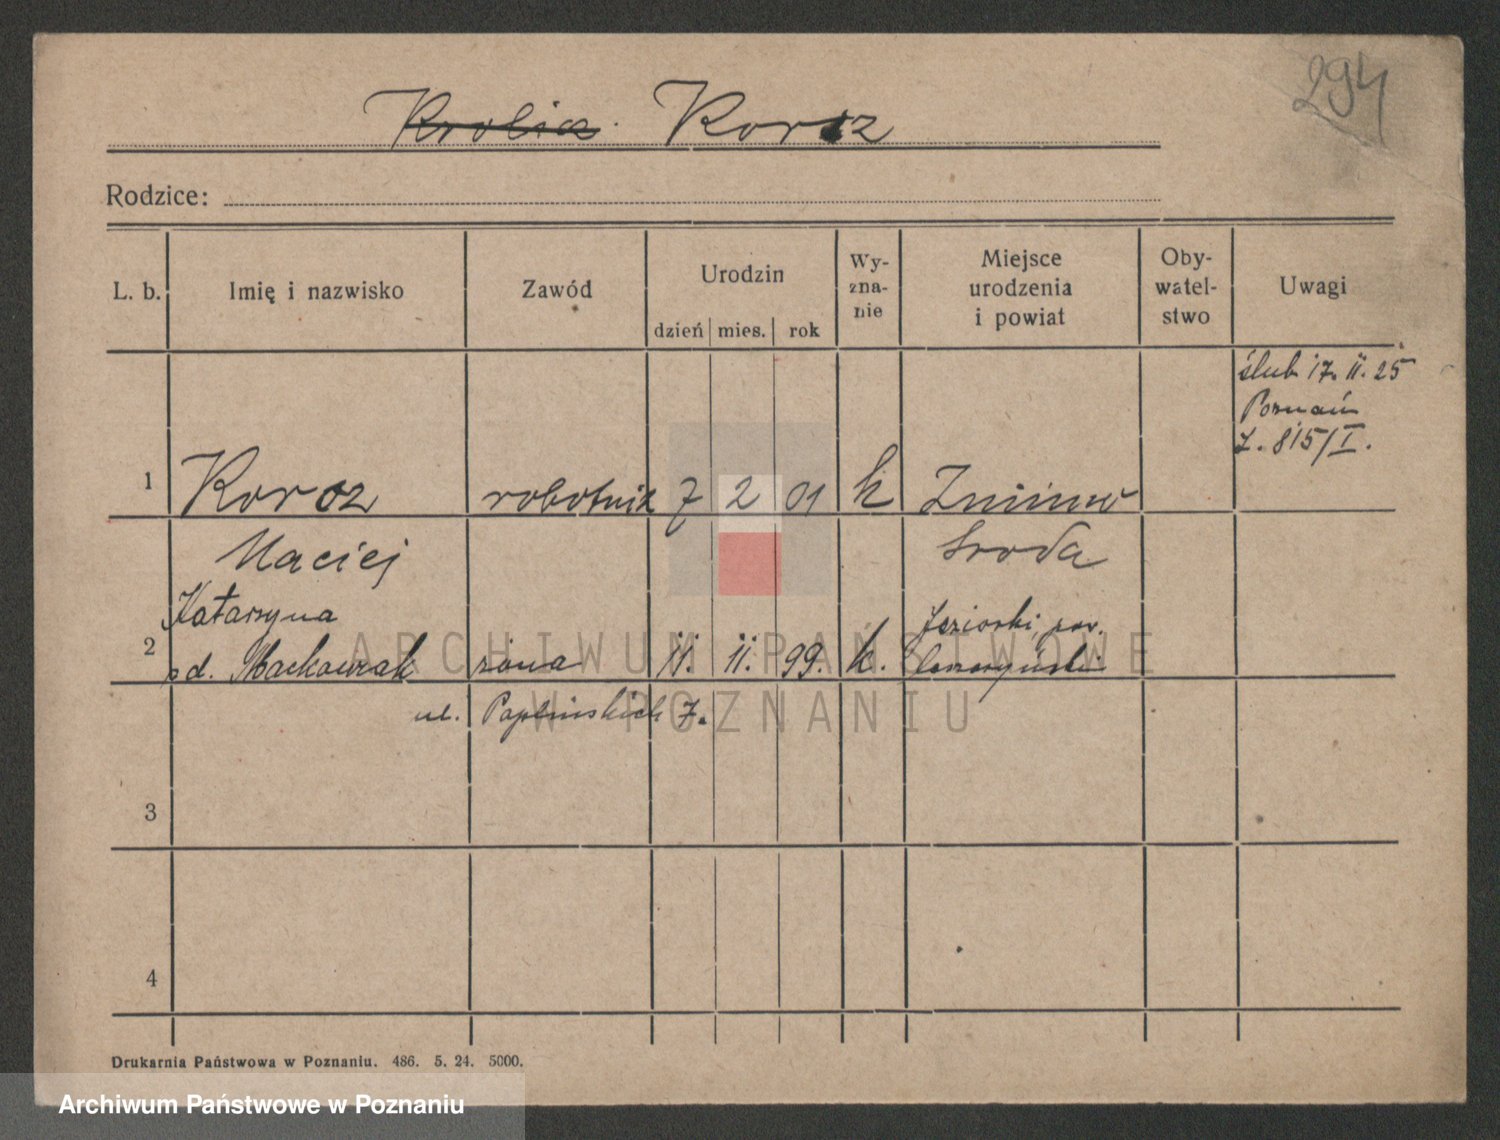 294
Krolicz Korcz
Rodzice:
L. b. Imię i nazwisko Zawód Urodzin dzień mies. rok Wy-zna-nie Miejsce urodzenia i powiat Oby-watel-stwo Uwagi
ślub 17. II. 25
Poznań
L. 815/I.
1 Korcz robotnik 7 2 01 k
Maciej Środa
Katarzyna Jeziorki, pow.
2 żona 11. 11. 99. k.
ul. Paplińskich 7.
3
4
Drukarnia Państwowa w Poznaniu. 486. 5. 24. 5000.
ARCHIWUM PAŃSTWOWE
W POZNANIU
Archiwum Państwowe w Poznaniu